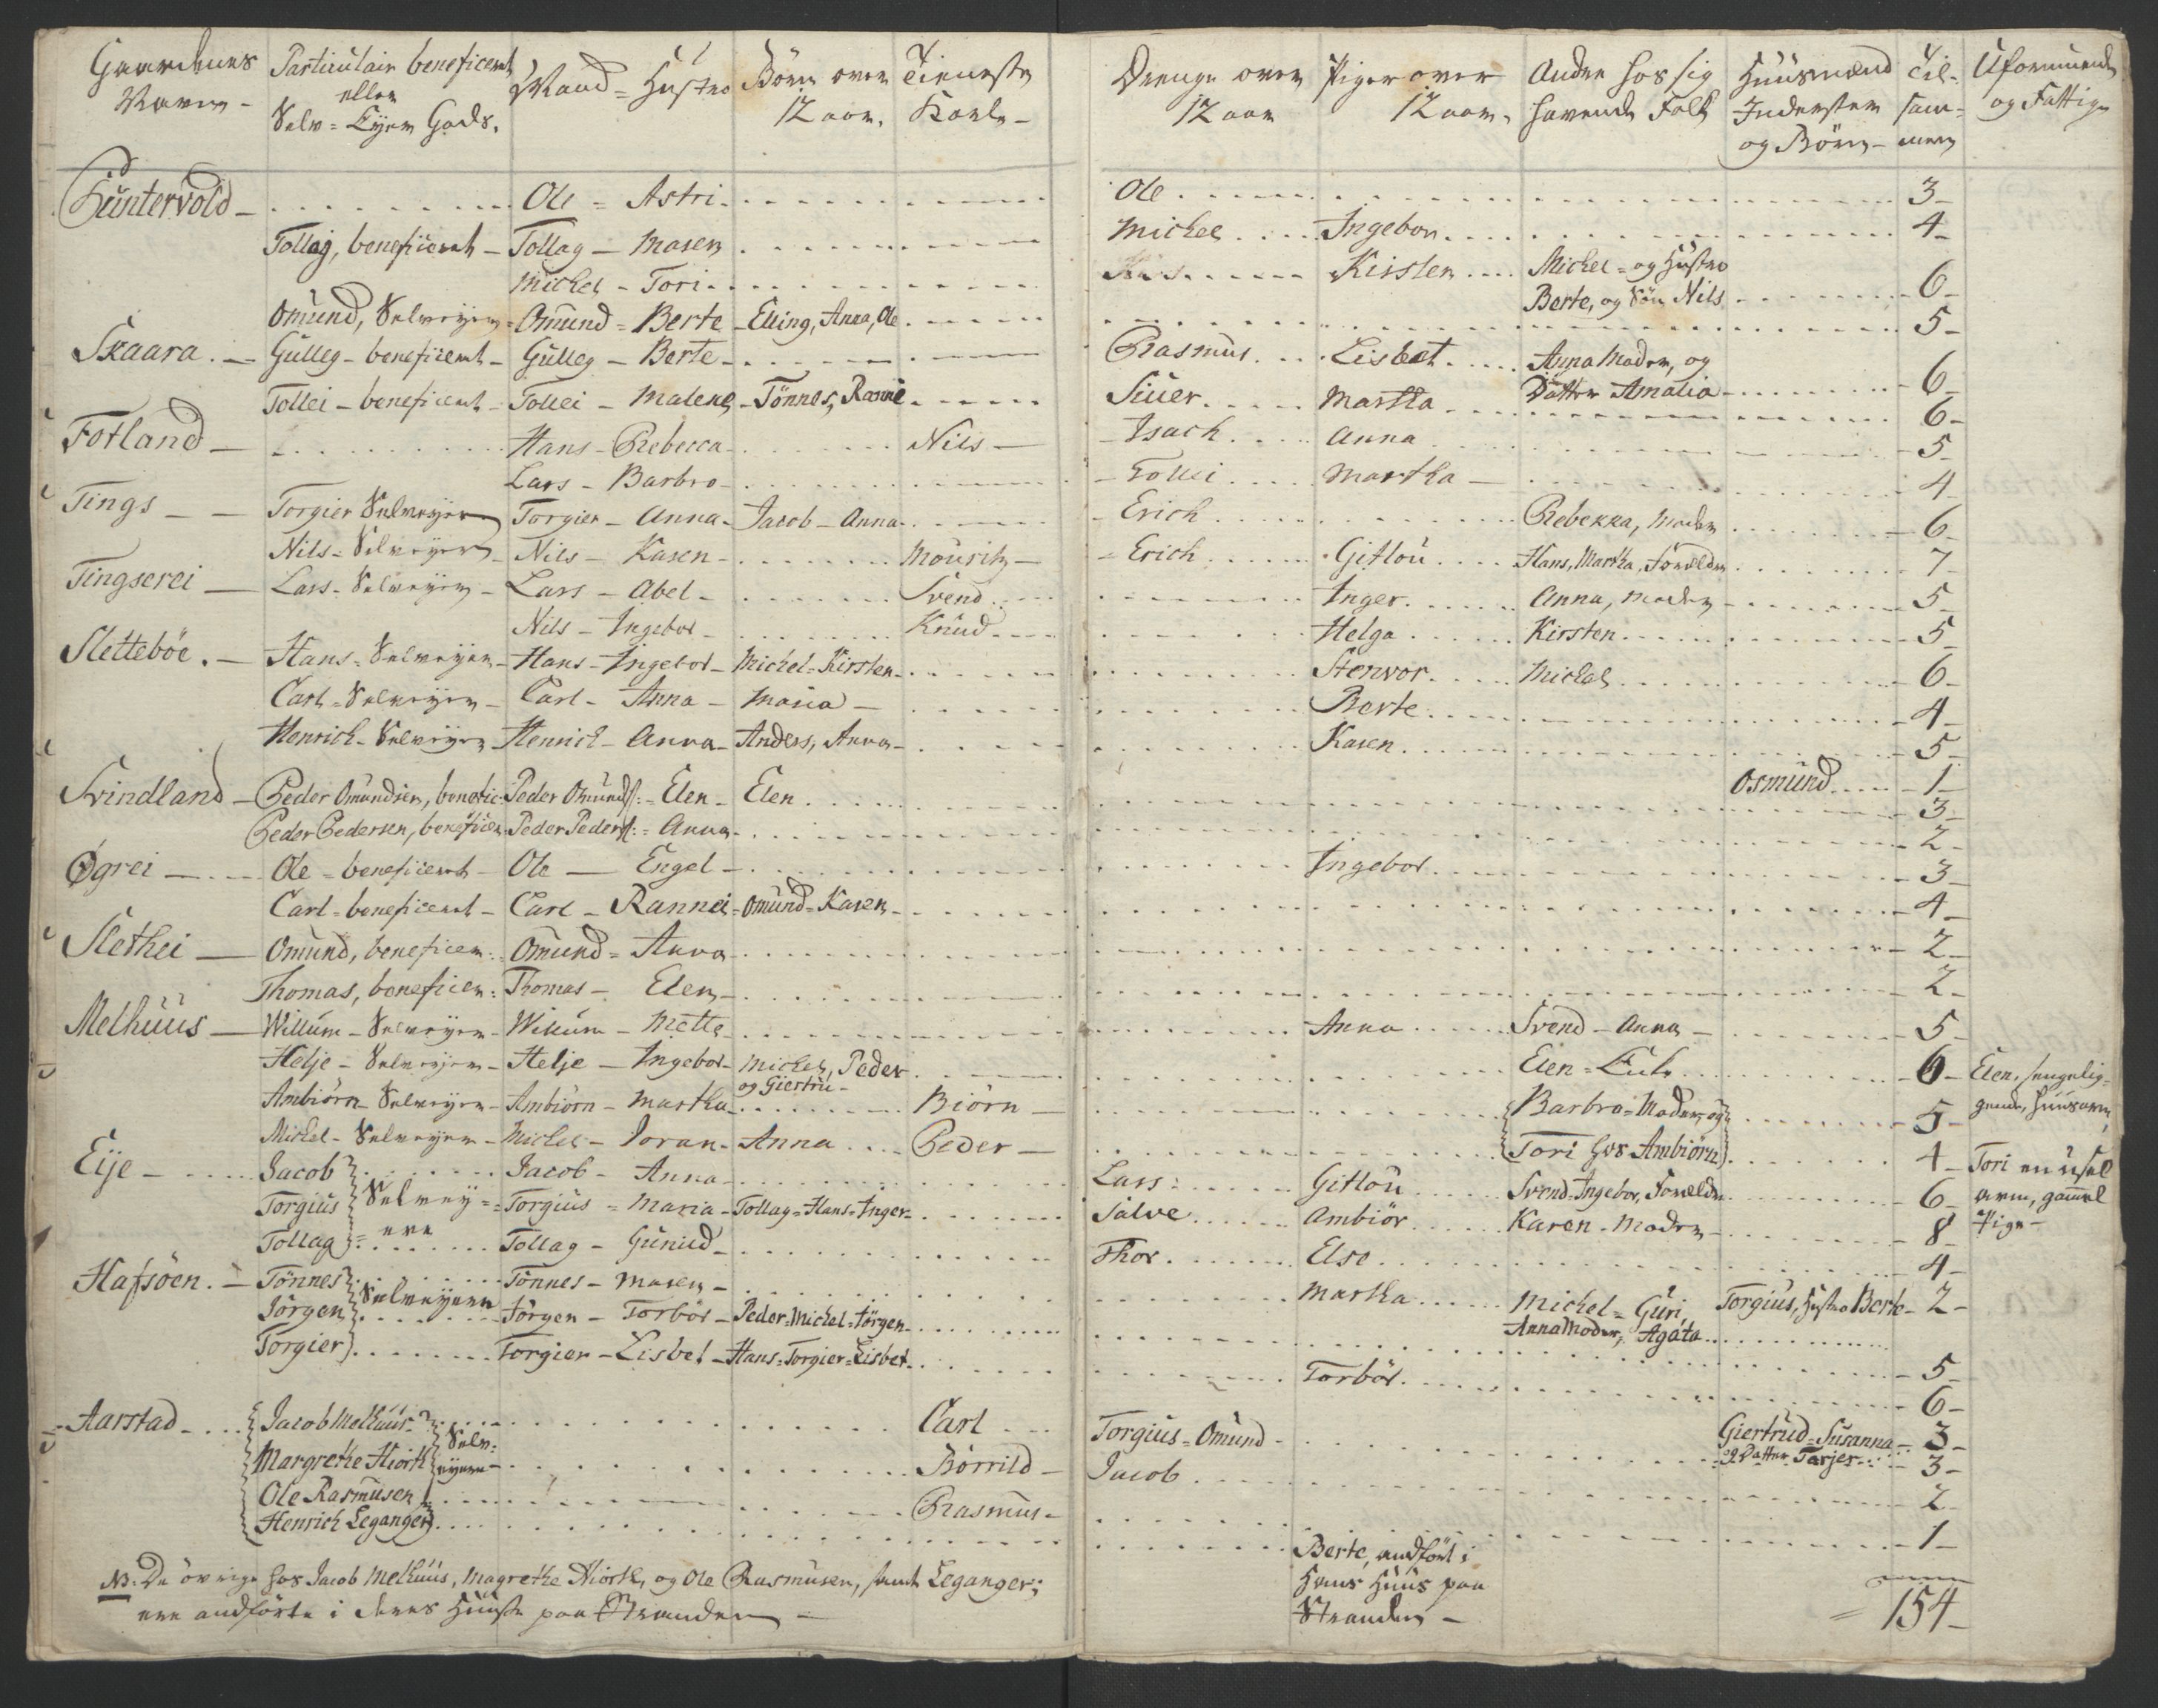 Gaardenes Navne - | Particulair beneficeret eller Selv=Eyer Gods. | Mand = Hustro | Börn over 12 aar. | Tieneste Karle - | Drenge over 12 aar | Piger over 12 aar. | Andre hos sig havende Folk | Huusmænd Inderster og Börn - | Til-sam-men | Uformuende og Fattige
Guntervold - | Ole = Astri | Ole | 3 -
Tollag, beneficeret - | Tollag - Maren | Michel | Ingebor | 4 -
Michel - Tori | Kirsten | Michel = og Hustro Berte, og Sön Nils | 6 -
Omund, Selveyer | Omund = Berte | Elling, Anna, Ole | 5 -
Skaara - | Gulleg - beneficeret - | Gulleg - Berte | Rasmus | Lisbet | Anna Moder, og Datter Amalia | 6 -
Tollei - beneficeret - | Tollei - Malene | Tönnes, Rannei | Siver | Martha | 6 -
Fotland - | Hans - Rebecca | Nils - | Isach | Anna | 5 -
Lars - Barbro | Tollei | Martha | 4 -
Tings - | Torgier Selveyer | Torgier - Anna | Jacob - Anna | Erich | Rebekka, Moder | 6 -
Nils - Selveyer | Nils - Karen | Mouritz - | Erich | Gitlou | Hans, Martha, Forældre | 7 -
Tingserei - | Lars - Selveyer - | Lars - Abel | Svend | Inger | Anna, Moder | 5 -
Nils - Ingebor | Knud | Helga | Kirsten | 5 -
Sletteböe - | Hans = Selveyer - | Hans - Ingebor | Michel = Kirsten | Stenvor | Michel | 6 -
Carl - Selveyer - | Carl - Anna | Maria - | Berte | 4 -
Henrich - Selveyer | Henrich - Anna | Anders, Anna - | Karen | 5 -
Osmund | 1 -
Svindland - | Peder Omundsen, benefic: | Peder Omunds: = Elen | Elen | 3 -
Peder Pedersen, beneficer: | Peder Peders: = Anna | 2 -
Øgrei - | Ole - beneficeret - | Ole - Engel | Ingebor | 3 -
Carl - beneficeret - | Carl - Rannei | Omund = Karen | 4 -
Slethei - | Omund, beneficer: | Omund = Anna | 2 -
Thomas, beneficer: | Thomas - Elen | 2 -
Melhuus - | Willum - Selveyer - | Willum - Mette | Anna | Svend - Anna - | 5 -
Helje - Selveyer - | Helje - Ingebor | Michel, Peder og Giertru - | Elen = | 6 - | Elen, sengelig-gende, Huusarm,
Ambiörn - Selveyer - | Ambiörn - Martha | Biörn - | Barbro = Moder, og | 5 -
Michel - Selveyer - | Michel - Joran | Anna | Peder - | Tori hos Ambiörn | 4 - | Tori en usel arm, gammel Pige -
Eije - | Jacob | Jacob - Anna | Lars | Gitlou | Svend = Ingebor, Forældre | 6 -
Torgius | Selvey=ere | Torgius = Maria | Tollag = Hans = Inger | Salve | Ambiör | Karen - Moder | 8 -
Tollag | Tollag - Gunild | Thor | Else | 4 -
Hafsöen - | Tönnes | Selveyere | Tönnes - Maren | Martha | Michel = Guri Anna Moder, Agata | Torgius, Hustro Berte | 2 -
Jörgen | Jörgen - Torbör | Peder = Michel = Jörgen | 5 -
Torgier | Torgier - Lisbet | Hans = Torgier = Lisbet | Torbör | 6 -
Aarstad - | Jacob Melhuus | Carl | Torgius = Omund | Giertrud = Susanna og Datter Tarjer | 3 -
Margrethe Hiorth | Selv-eyere | Börrild - | Jacob | 3 -
Ole Rasmusen | Rasmus - | 2 -
Henrich Leganger | Berte, andfört i Hans Huus paa Stranden - | 1 -
NB: De övrige hos Jacob Melhuus, Magrethe Hiorth, og Ole Rasmusen, samt Leganger;
ere andförte i deres Huuse paa Stranden -
= 154 -